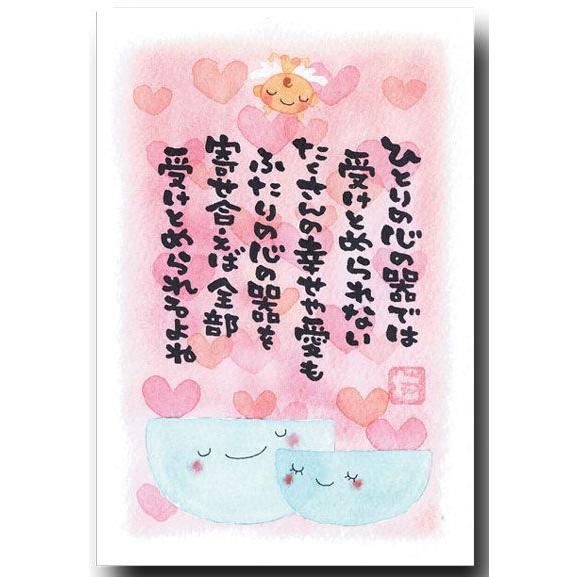 ひとりの心の器では
受けとめられない
たくさんの幸せや愛も
ふたりの心の器を
寄せ合えば全部
受けとめられるよね